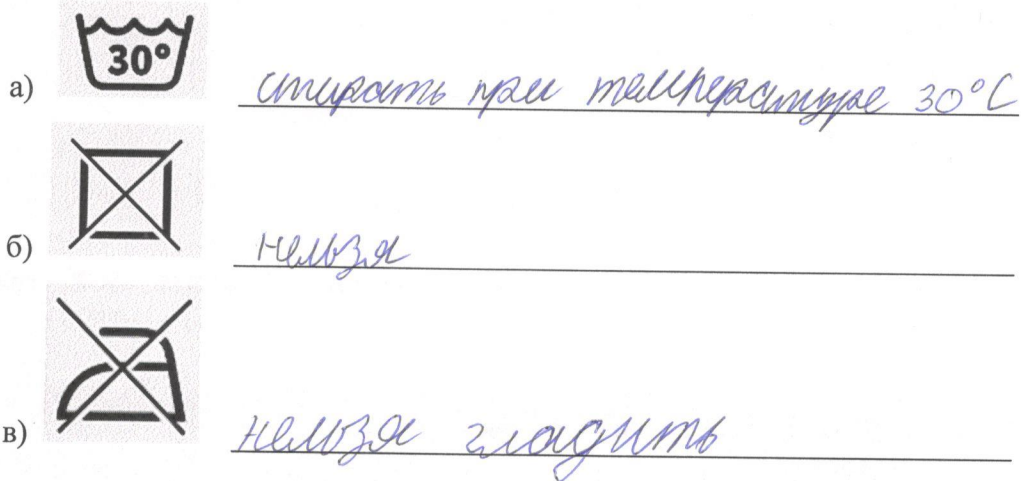 30°
а) стирать при температуре 30°С
б) нельзя
в) нельзя гладить